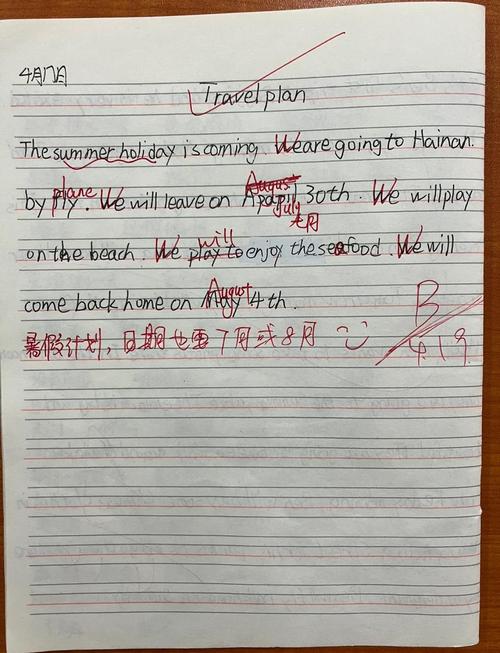 4月17日
Travel plan
The summer holiday is coming. We are going to Hainan.
plane
by fly. We will leave on Apapil 30th. We will play
August
July
七月
on the beach. We play to enjoy the seafood. We will
will
come back home on May 4th.
August
B
暑假计划，日期也要7月或8月
4.19